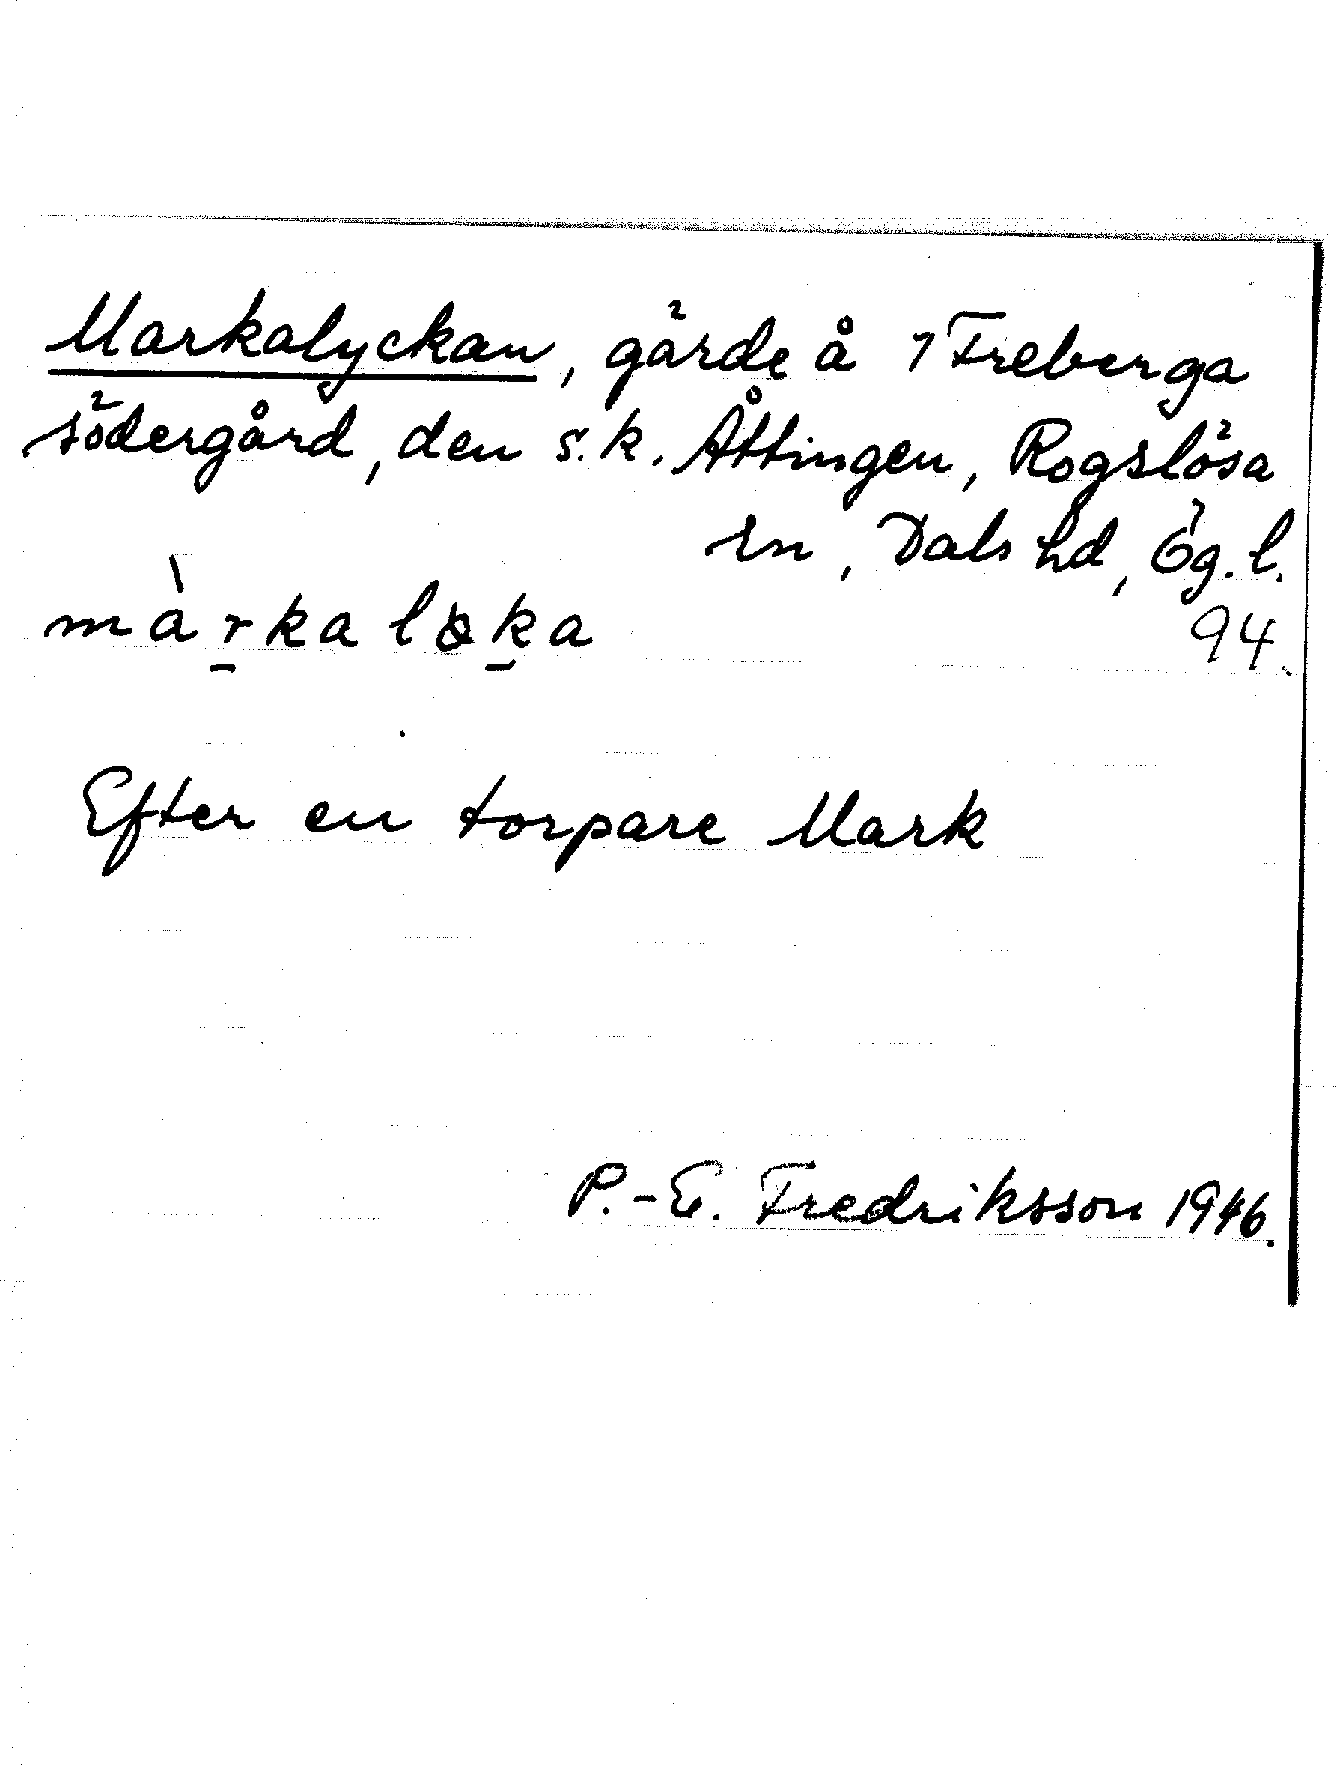 Markalyckan, gärde å 1 Freberga
södergård, den s.k. Åttingen, Rogslösa
sn, Dals hd, Ög. l.
94.
Efter en torpare Mark
P.-E. Fredriksson 1946.